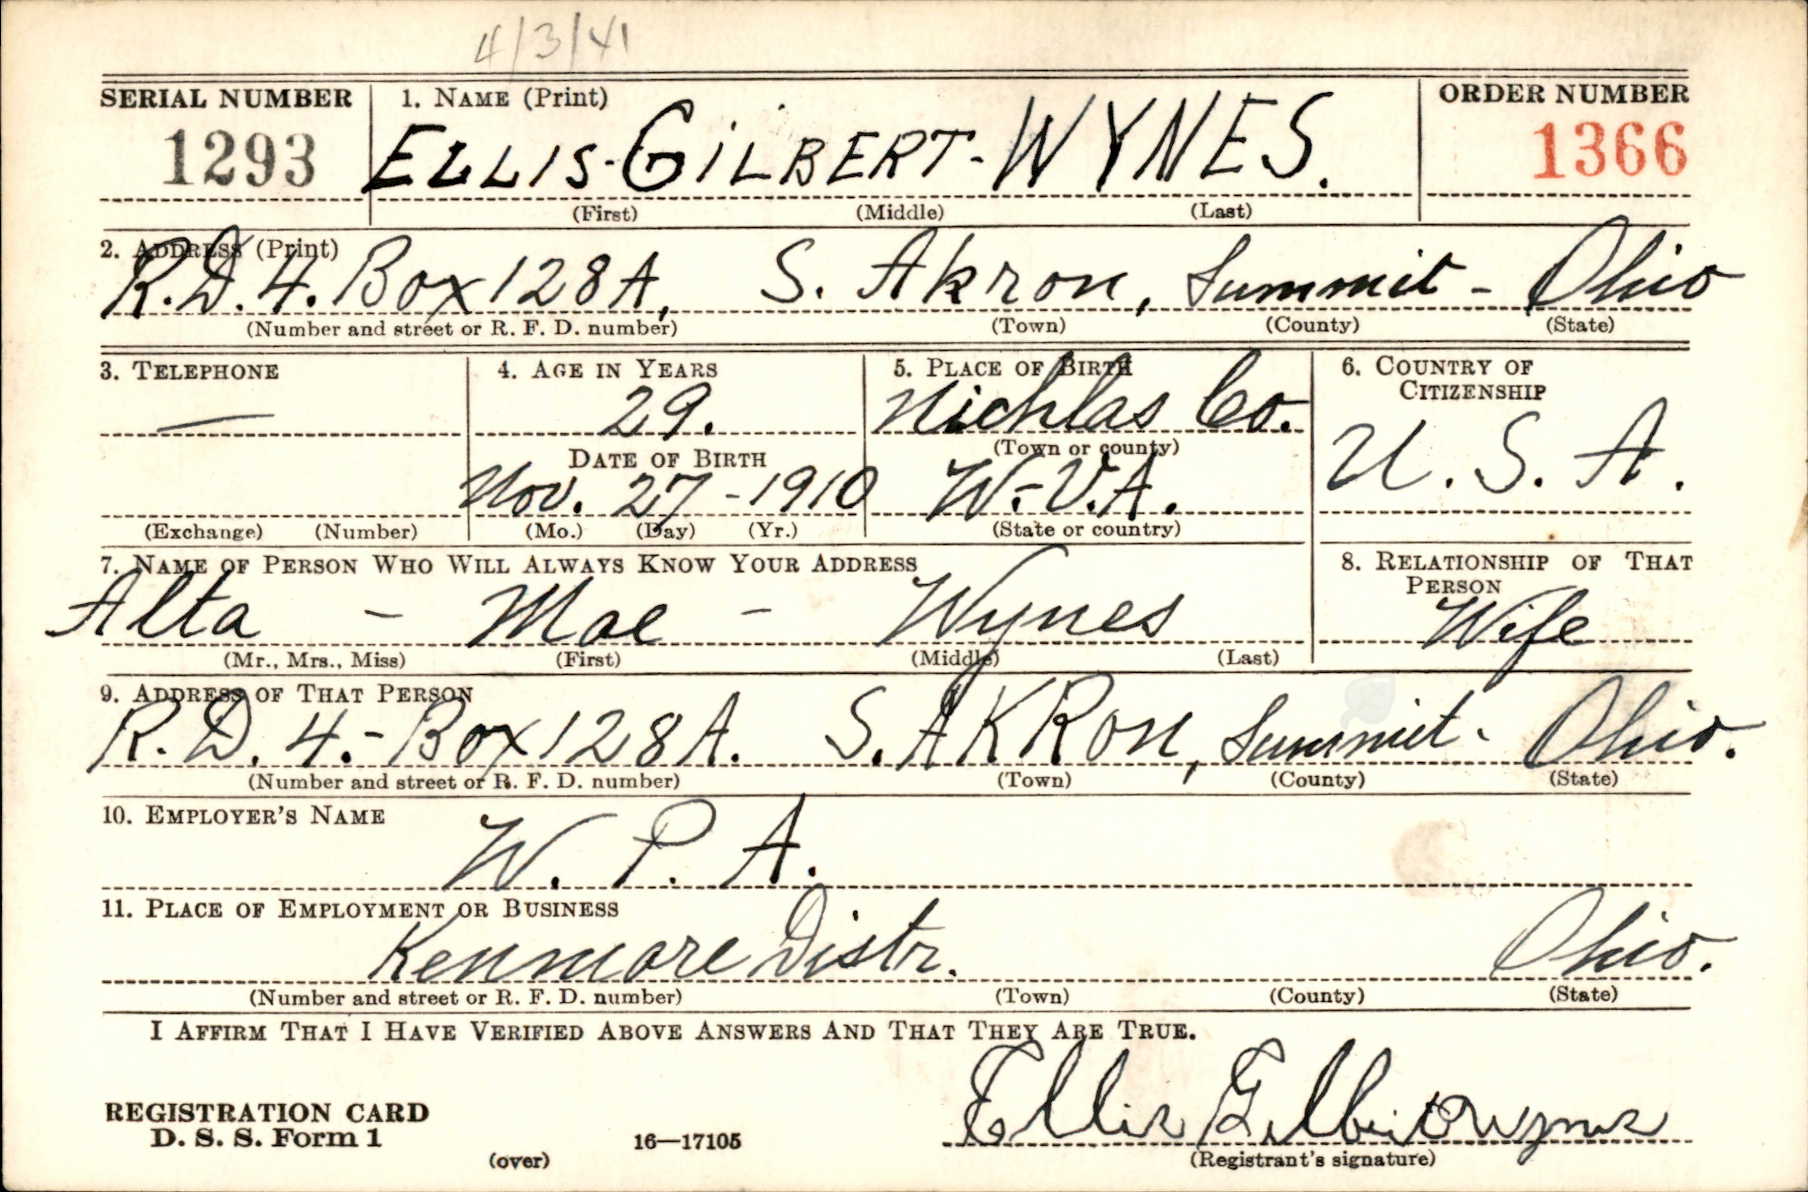 4/3/41
SERIAL NUMBER 1. NAME (Print) ORDER NUMBER
1293 ELLIS-GILBERT-WYNES. 1366
(First) (Middle) (Last)
2. ADDRESS (Print)
R.D.4. Box 128A, S. Akron, Summit - Ohio
(Number and street or R. F. D. number) (Town) (County) (State)
3. TELEPHONE 4. AGE IN YEARS 5. PLACE OF BIRTH 6. COUNTRY OF
CITIZENSHIP
— 29. Nichlas Co.
DATE OF BIRTH (Town or county) U. S. A.
Nov. 27-1910 W.-V.A.
(Exchange) (Number) (Mo.) (Day) (Yr.) (State or country)
7. NAME OF PERSON WHO WILL ALWAYS KNOW YOUR ADDRESS 8. RELATIONSHIP OF THAT
PERSON
Alta - Mae - Wynes Wife
(Mr., Mrs., Miss) (First) (Middle) (Last)
9. ADDRESS OF THAT PERSON
R.D. 4.- Box 128A. S. AKRon, Summit- Ohio.
(Number and street or R. F. D. number) (Town) (County) (State)
10. EMPLOYER'S NAME
W. P. A.
11. PLACE OF EMPLOYMENT OR BUSINESS
Kenmore Distr. Ohio.
(Number and street or R. F. D. number) (Town) (County) (State)
I AFFIRM THAT I HAVE VERIFIED ABOVE ANSWERS AND THAT THEY ARE TRUE.
REGISTRATION CARD
D. S. S. Form 1 16—17105 Ellis Gilbert Wynes
(over) (Registrant's signature)